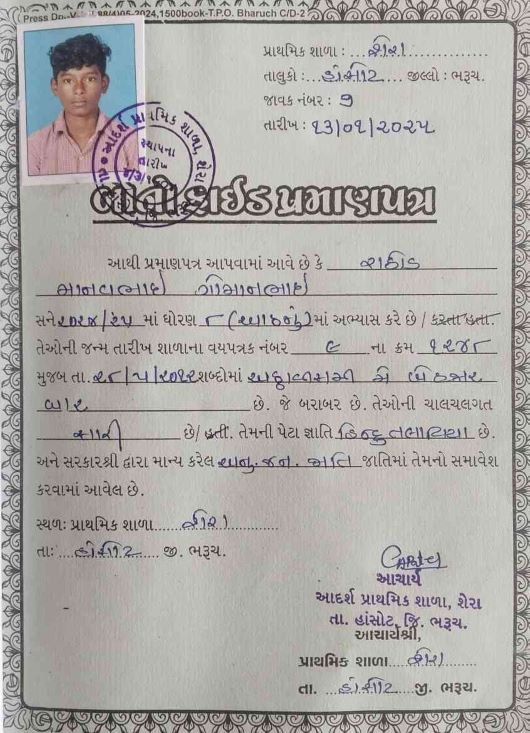 Press Dn- 88(4)05-2024,1500book-T.P.O. Bharuch C/D-2
પ્રાથમિક શાળા : શેરા
તાલુકો : હાંસોટ જીલ્લો : ભરૂચ.
જાવક નંબર : ૭
તારીખ : ૧૩/૦૧/૨૦૨૫
આદર્શ પ્રાથમિક શાળા, શેરા
સ્થાપના
તારીખ
બોનોફાઇડ પ્રમાણપત્ર
આથી પ્રમાણપત્ર આપવામાં આવે છે કે રાઠોડ
માનવભાઈ
સને ૨૦૨૪/૨૫ માં ધોરણ ૮ (આઠમું) માં અભ્યાસ કરે છે / કરતા હતા.
તેઓની જન્મ તારીખ શાળાના વયપત્રક નંબર ૯ ના ક્રમ ૧૨૪૮
મુજબ તા. ૨૮/૫/૨૦૧૨ શબ્દોમાં અઠ્ઠાવીસમી મે બે હજાર
બાર છે. જે બરાબર છે. તેઓની ચાલચલગત
સારી છે/ હતી. તેમની પેટા જ્ઞાતિ હિન્દુ તલાવિયા છે.
અને સરકારશ્રી દ્વારા માન્ય કરેલ અનુ. જન. જાતિ જાતિમાં તેમનો સમાવેશ
કરવામાં આવેલ છે.
સ્થળઃ પ્રાથમિક શાળા શેરા
તાઃ હાંસોટ જી. ભરૂચ.
આચાર્ય
આદર્શ પ્રાથમિક શાળા, શેરા
તા. હાંસોટ, જિ. ભરૂચ.
આચાર્યશ્રી,
પ્રાથમિક શાળા શેરા
તા. હાંસોટ જી. ભરૂચ.